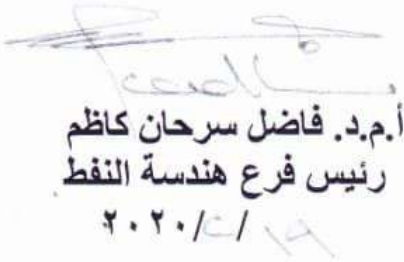 أ.م.د. فاضل سرحان كاظم
رئيس فرع هندسة النفط
١٩/٢/٢٠٢٠